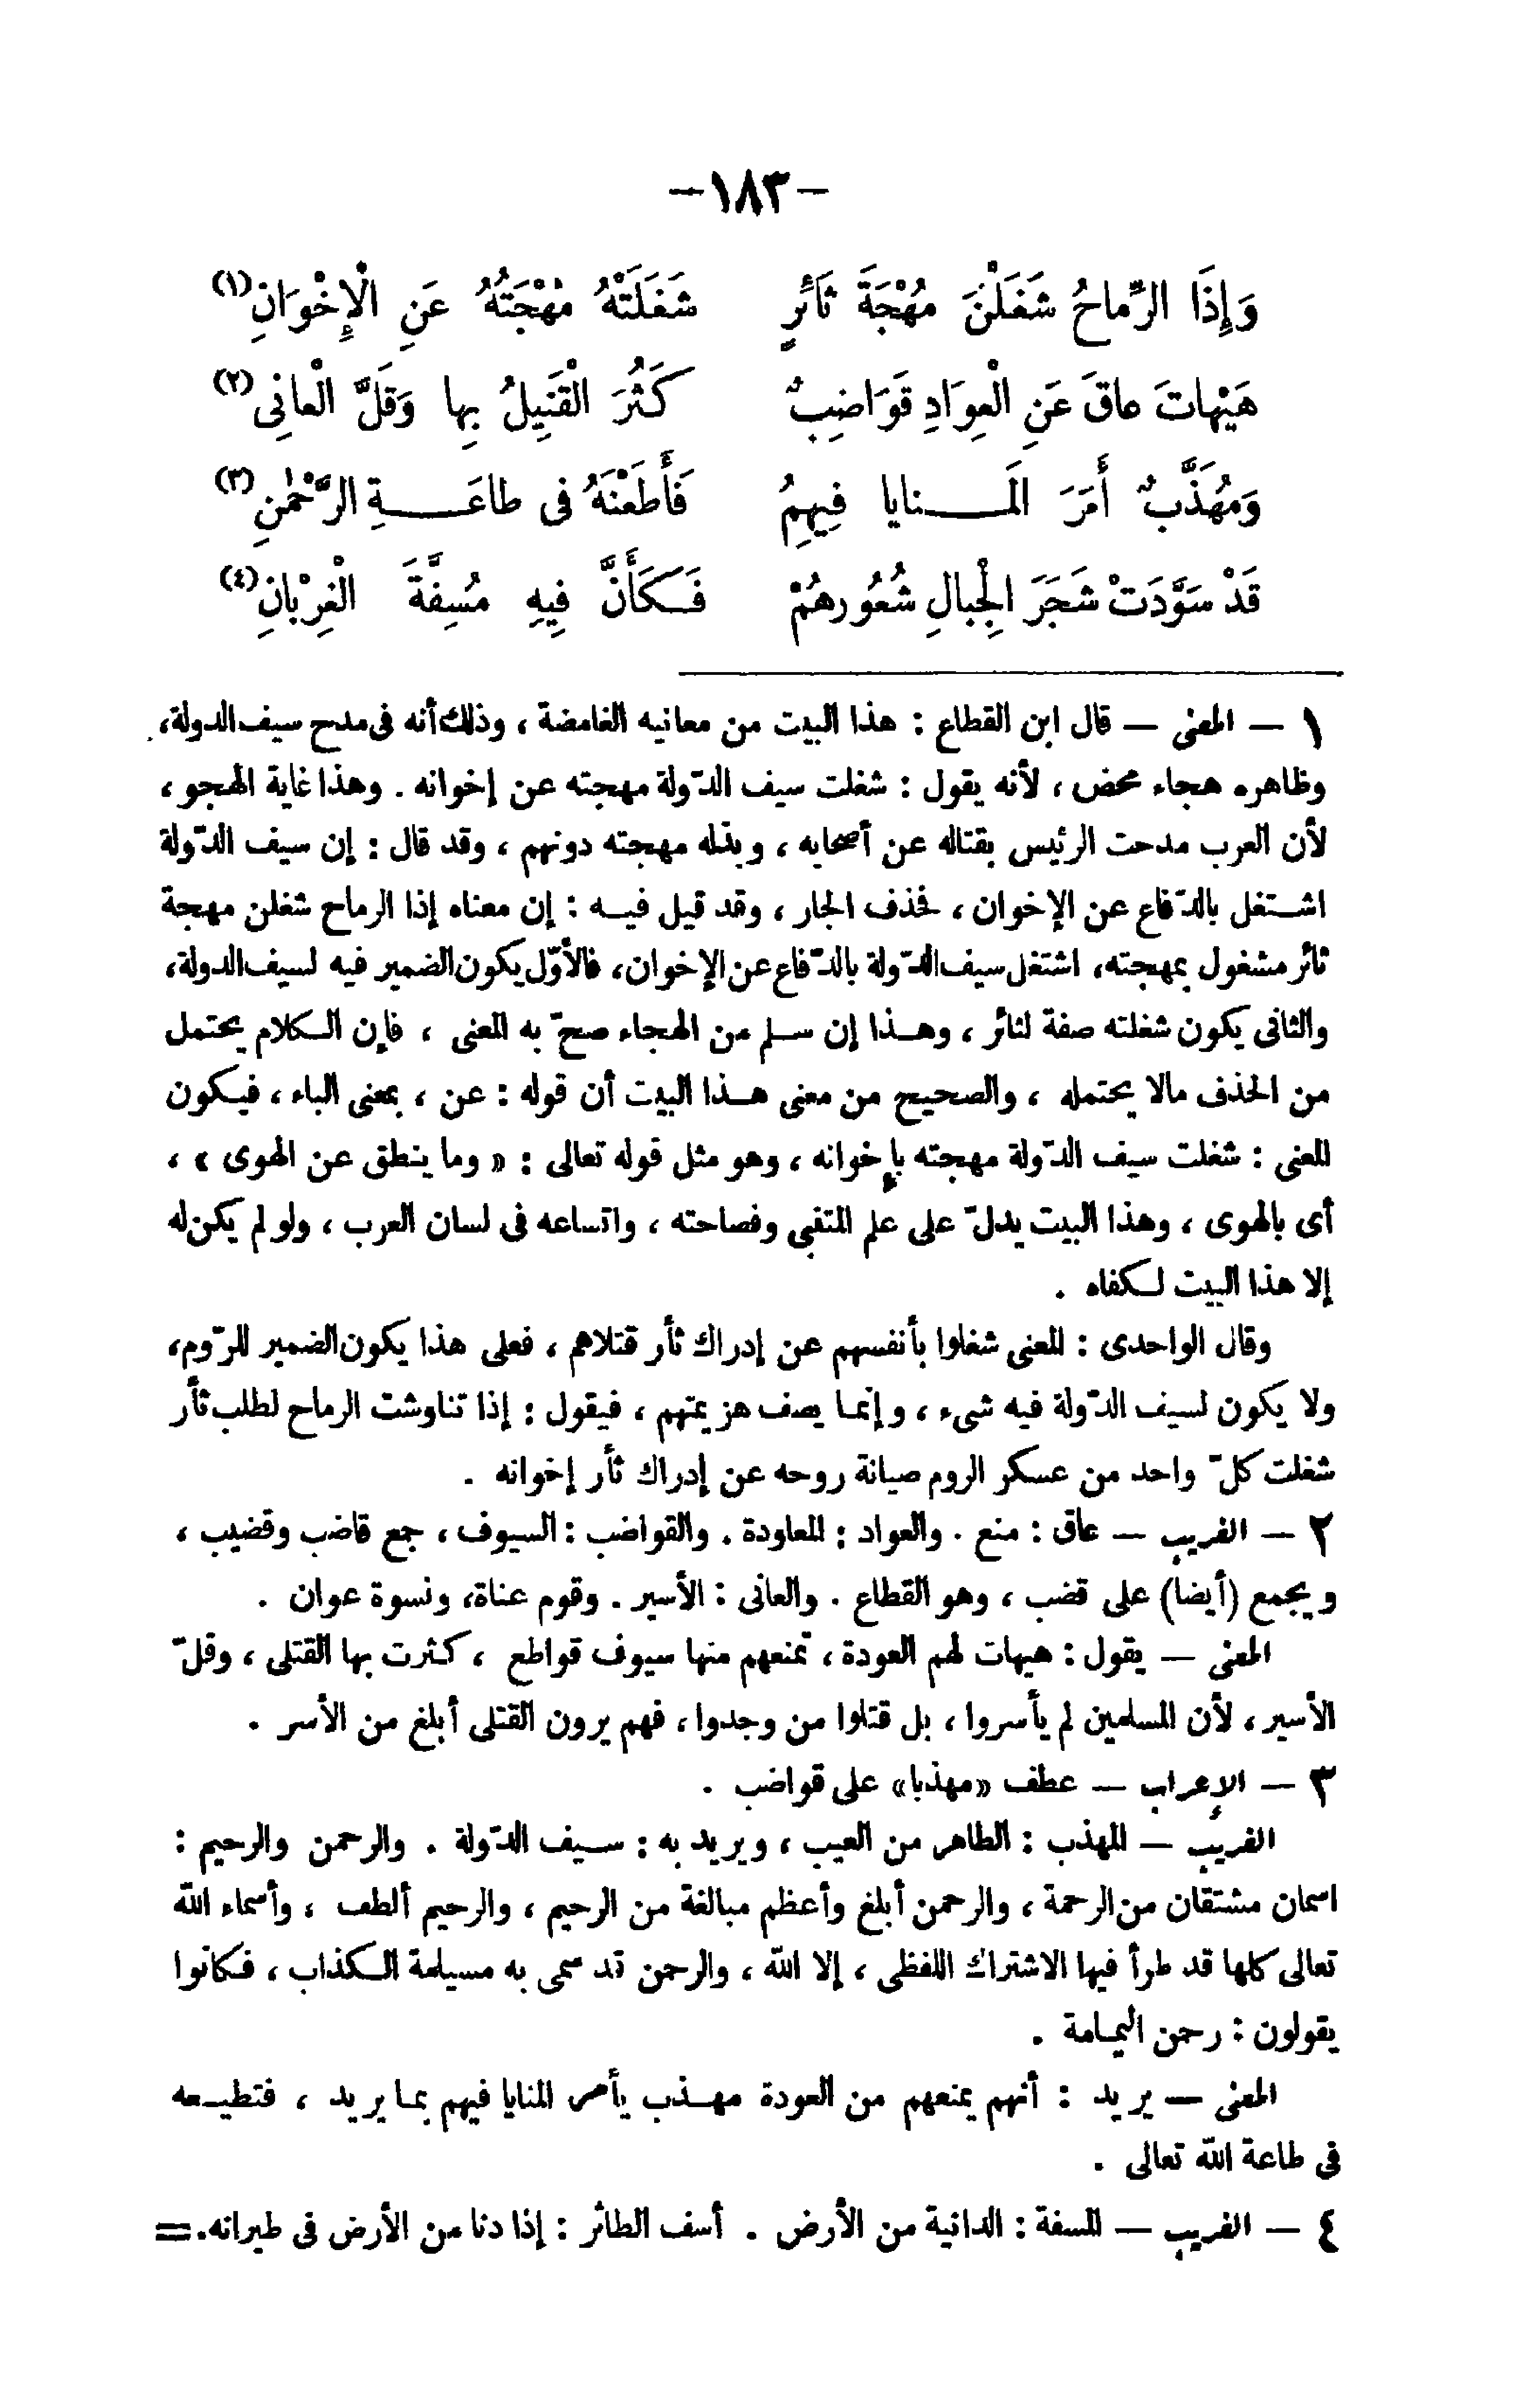 -١٨٣-
وَإِذَا الرِّماحُ شَغَلْنَ مُهْجَةَ ثَائرٍ شَغَلَتْهُ مُهْجَتُهُ عَنِ الْإِخْوَانِ(١)
هَيْهاتَ عاقَ عَنِ الْعِوَادِ قَوَاضِبٌ كَثُرَ الْقَتِيلُ بِها وَقَلَّ الْعانِى(٢)
وَمُهَذَّبٌ أَمَرَ الَمنايا فِيهِمُ فَأَطَعْنَهُ فى طاعَةِ الرَّحْمٰنِ(٣)
قَدْ سَوَّدَتْ شَجَرَ الْجِبالِ شُعُورهُمْ فَكَأَنَّ فِيهِ مُسِفَّةَ الْغِرْبانِ(٤)
١ — المعنى — قال ابن القطاع : هذا البيت من معانيه الغامضة ، وذلك أنه فى مدح سيف الدولة،
وظاهره هجاء محض ، لأنه يقول : شغلت سيف الدّولة مهجته عن إخوانه . وهذا غاية الهجو ،
لأن العرب مدحت الرئيس بقتاله عن أصحابه ، وبذله مهجته دونهم ، وقد قال : إن سيف الدّولة
اشتغل بالدّفاع عن الإخوان ، فحذف الجار ، وقد قيل فيه : إن معناه إذا الرماح شغلن مهجة
ثائر مشغول بمهجته، اشتغل سيف الدّولة بالدّفاع عن الإخوان، فالأوّل يكون الضمير فيه لسيف الدولة،
والثانى يكون شغلته صفة لثائر ، وهذا إن سلم من الهجاء صحّ به المعنى ، فإن الكلام يحتمل
من الحذف مالا يحتمله ، والصحيح من معنى هذا البيت أن قوله : عن ، بمعنى الباء ، فيكون
المعنى : شغلت سيف الدّولة مهجته بإخوانه ، وهو مثل قوله تعالى : « وما ينطق عن الهوى » ،
أى بالهوى ، وهذا البيت يدلّ على علم المتنبى وفصاحته ، واتساعه فى لسان العرب ، ولو لم يكن له
إلا هذا البيت لكفاه .
وقال الواحدى : المعنى شغلوا بأنفسهم عن إدراك ثأر قتلاهم ، فعلى هذا يكون الضمير للرّوم،
ولا يكون لسيف الدّولة فيه شىء ، وإنما يصف هزيمتهم ، فيقول : إذا تناوشت الرماح لطلب ثأر
شغلت كلّ واحد من عسكر الروم صيانة روحه عن إدراك ثأر إخوانه .
٢ — الغريب — عاق : منع . والعواد : المعاودة . والقواضب : السيوف ، جمع قاضب وقضيب ،
ويجمع (أيضا) على قضب ، وهو القطاع . والعانى : الأسير . وقوم عناة، ونسوة عوان .
المعنى — يقول : هيهات لهم العودة ، تمنعهم منها سيوف قواطع ، كثرت بها القتلى ، وقلّ
الأسير ، لأن المسلمين لم يأسروا ، بل قتلوا من وجدوا ، فهم يرون القتلى أبلغ من الأسر .
٣ — الإعراب — عطف «مهذبا» على قواضب .
الغريب — المهذب : الطاهر من العيب ، ويريد به : سيف الدّولة . والرحمن والرحيم :
اسمان مشتقان من الرحمة ، والرحمن أبلغ وأعظم مبالغة من الرحيم ، والرحيم ألطف ، وأسماء الله
تعالى كلها قد طرأ فيها الاشتراك اللفظى ، إلا الله ، والرحمن قد سمى به مسيلمة الكذاب ، فكانوا
يقولون : رحمن اليمامة .
المعنى — يريد : أنهم يمنعهم من العودة مهذب يأمر المنايا فيهم بما يريد ، فتطيعه
فى طاعة الله تعالى .
٤ — الغريب — المسفة : الدانية من الأرض . أسف الطائر : إذا دنا من الأرض فى طيرانه. =